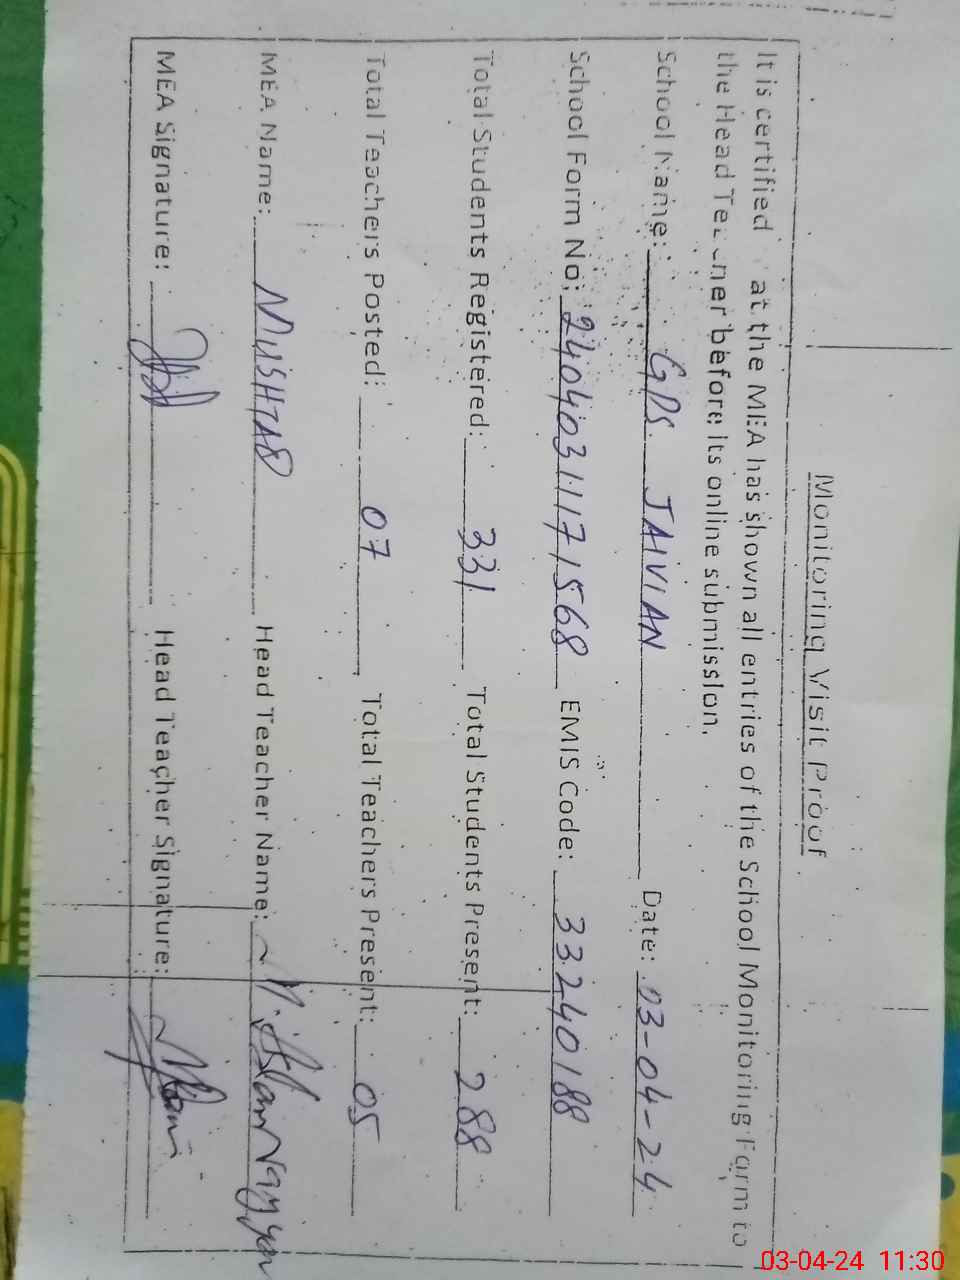 Monitoring Visit Proof
It is certified at the MEA has shown all entries of the School Monitoring Form to
the Head Teacher before its online submission.
School Name: GPS. JAIVIAN Date: 03-04-24
School Form No: 24040311171568 EMIS Code: 33240188
Total Students Registered: 331 Total Students Present: 288
Total Teachers Posted: 07 Total Teachers Present: 05
MEA Name: MUSHTAQ Head Teacher Name: M. Aslam
MEA Signature: Head Teacher Signature:
03-04-24 11:30